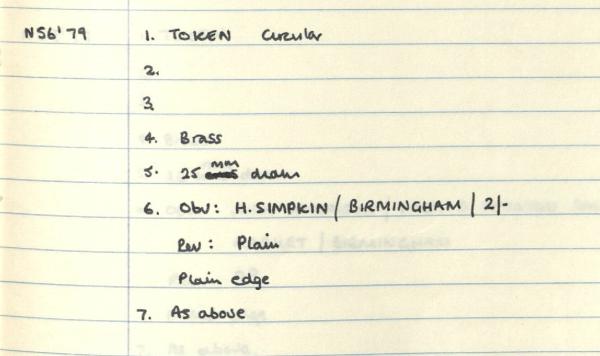 N56'79 1. TOKEN Circular
2.
3.
4. Brass
5. 25 mm diam
6. Obv: H. SIMPKIN / BIRMINGHAM / 2/-
Rev: Plain
Plain edge
7. As above